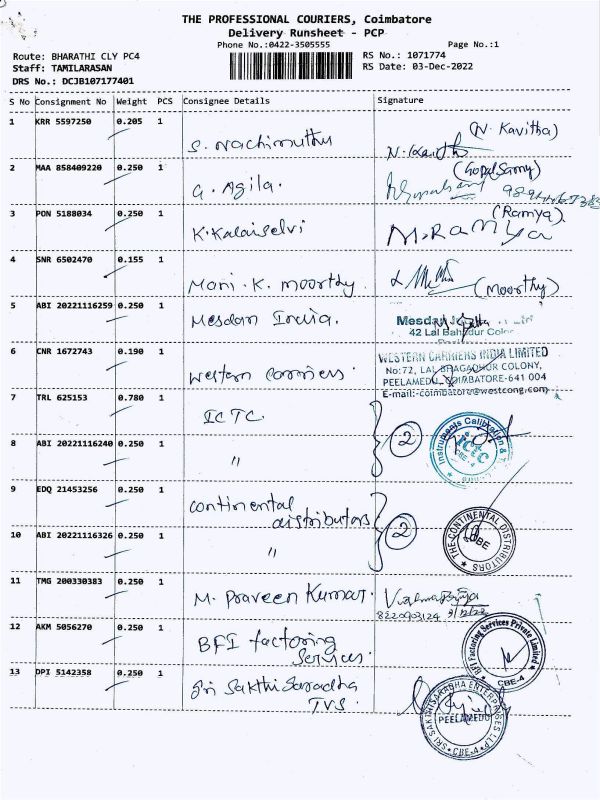 THE PROFESSIONAL COURIERS, Coimbatore
Delivery Runsheet - PCP
Phone No.:0422-3505555
Page No.:1
Route: BHARATHI CLY PC4
RS No.: 1071774
Staff: TAMILARASAN
RS Date: 03-Dec-2022
DRS No.: DCJB107177401
S No Consignment No Weight PCS Consignee Details Signature
1 KRR 5597250 0.205 1
S. Nachimuthu
(N. Kavitha)
2 MAA 858409220 0.250 1
G. Agila.
(Gopal Samy)
3 PON 5188034 0.250 1
K. Kalaiselvi
(Ramya)
M. RAMYA
4 SNR 6502470 0.155 1
Moni. K. moorthy.
(Moorthy)
5 ABI 20221116259 0.250 1
Mesdan India.
Mesdan
42 Lal Bahadur Colo
6 CNR 1672743 0.190 1
Western carriers.
WESTERN CARRIERS INDIA LIMITED
No:72, LAL BHAGADHUR COLONY,
PEELAMEDU, COIMBATORE-641 004
E-mail:-coimbatore@westcong.com
7 TRL 625153 0.780 1
ICTC.
2
Instruments Calibration &
ictc
CBE-4
8 ABI 20221116240 0.250 1
"
9 EDQ 21453256 0.250 1
Continental
distributors
2
THE CONTINENTAL DISTRIBUTORS
CBE
10 ABI 20221116326 0.250 1
"
11 TMG 200330383 0.250 1
M. Praveen Kumar.
8220903124 3/12/22
12 AKM 5056270 0.250 1
BFI factoring
Services.
BFI Factoring Services Private Limited
CBE-4
13 DPI 5142358 0.250 1
Sri Sakthi Saradha
TVS.
SRI SAKTHISARADHA ENTERPRISES LLP
PEELAMEDU
CBE-4